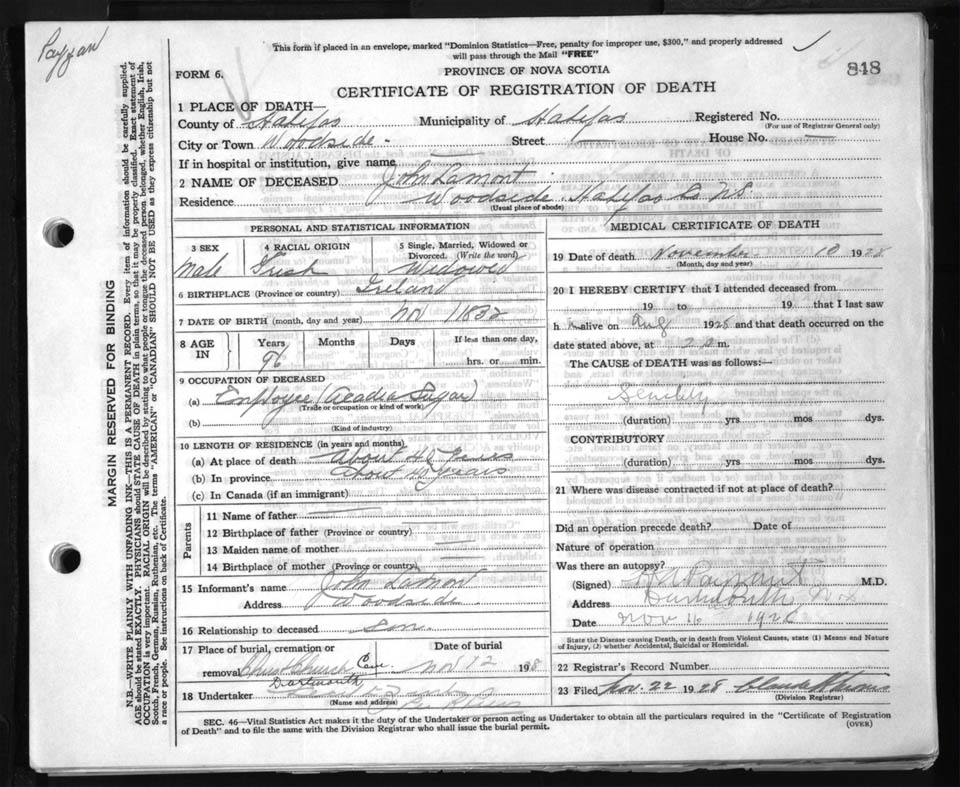 Payzan
This form if placed in an envelope, marked "Dominion Statistics—Free, penalty for improper use, $300," and properly addressed
will pass through the Mail "FREE"
FORM 6.
PROVINCE OF NOVA SCOTIA
848
CERTIFICATE OF REGISTRATION OF DEATH
1 PLACE OF DEATH—
County of Halifax Municipality of Halifax Registered No.
(For use of Registrar General only)
City or Town Woodside - Street House No. —
If in hospital or institution, give name
2 NAME OF DECEASED John Lamont
Residence Woodside Halifax Co N.S.
(Usual place of abode)
PERSONAL AND STATISTICAL INFORMATION
3 SEX 4 RACIAL ORIGIN 5 Single, Married, Widowed or
Divorced. (Write the word)
Male Irish Widowed
6 BIRTHPLACE (Province or country) Ireland
7 DATE OF BIRTH (month, day and year) 1832
8 AGE IN Years Months Days If less than one day,
96 hrs. or min.
9 OCCUPATION OF DECEASED
(a) Employee (Acadia Sugar)
(Trade or occupation or kind of work)
(b)
(Kind of industry)
10 LENGTH OF RESIDENCE (in years and months)
(a) At place of death About 45 years
(b) In province About years
(c) In Canada (if an immigrant)
Parents
11 Name of father —
12 Birthplace of father (Province or country)
13 Maiden name of mother —
14 Birthplace of mother (Province or country) —
15 Informant's name John Lamont
Address Woodside
16 Relationship to deceased Son
17 Place of burial, cremation or Date of burial
removal Christ Church Cem. Nov 12 1928
Dartmouth
18 Undertaker
(Name and address)
MEDICAL CERTIFICATE OF DEATH
19 Date of death November 10 1928
(Month, day and year)
20 I HEREBY CERTIFY that I attended deceased from
19 to 19 that I last saw
h im alive on Aug 1928 and that death occurred on the
date stated above, at m.
The CAUSE of DEATH was as follows:—
Senility
(duration) yrs mos dys.
CONTRIBUTORY
(duration) yrs mos dys.
21 Where was disease contracted if not at place of death?
Did an operation precede death? Date of
Nature of operation
Was there an autopsy?
(Signed) M.D.
Address Dartmouth N.S.
Date Nov 16 1928
State the Disease causing Death, or in death from Violent Causes, state (1) Means and Nature
of Injury, (2) whether Accidental, Suicidal or Homicidal.
22 Registrar's Record Number
23 Filed Nov. 22 1928
(Division Registrar)
SEC. 46—Vital Statistics Act makes it the duty of the Undertaker or person acting as Undertaker to obtain all the particulars required in the "Certificate of Registration
of Death" and to file the same with the Division Registrar who shall issue the burial permit.
(OVER)
MARGIN RESERVED FOR BINDING
N.B.—WRITE PLAINLY WITH UNFADING INK—THIS IS A PERMANENT RECORD. Every item of information should be carefully supplied.
AGE should be stated EXACTLY. PHYSICIANS should STATE CAUSE OF DEATH in plain terms, so that it may be properly classified. Exact statement of
OCCUPATION is very important. RACIAL ORIGIN will be described by stating to what people or tongue the deceased person belonged, whether English, Irish,
Scotch, French, German, Russian, Ruthenian, etc. The terms "AMERICAN" or "CANADIAN" SHOULD NOT BE USED as they express citizenship but not
a race or people. See instructions on back of Certificate.